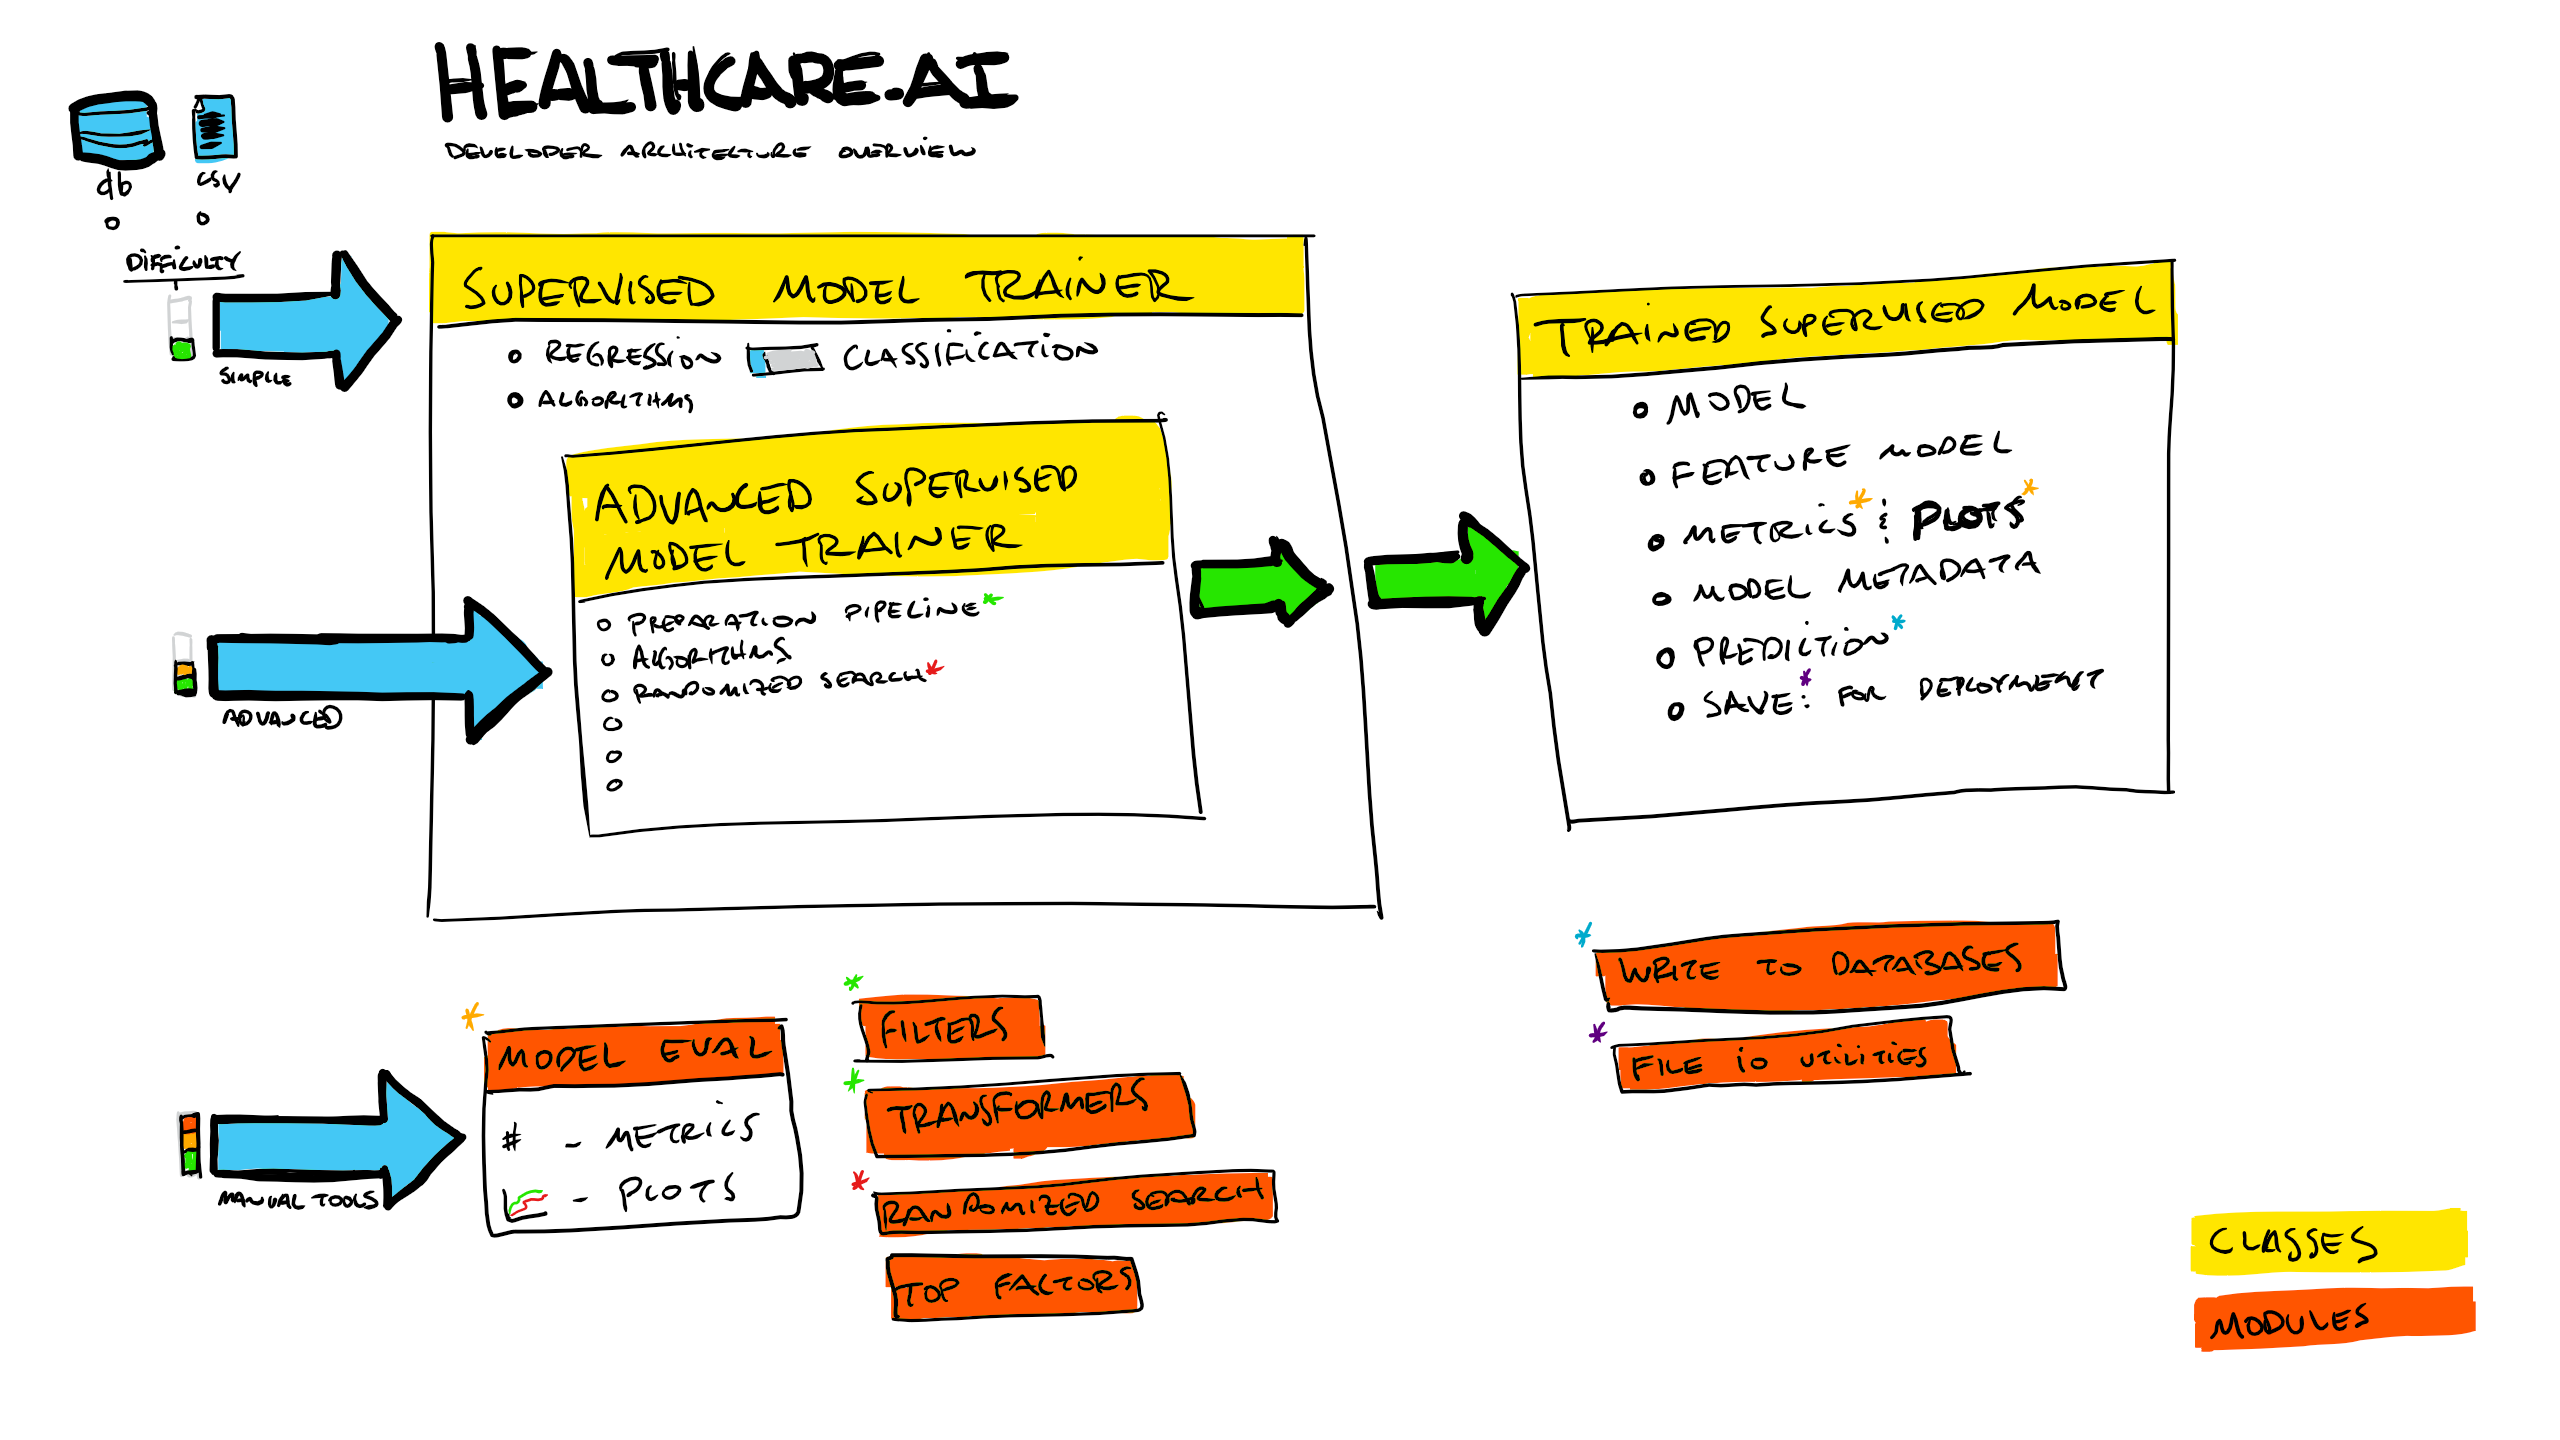 HEALTHCARE.AI
DEVELOPER ARCHITECTURE OVERVIEW
db
CSV
DIFFICULTY
SIMPLE
SUPERVISED MODEL TRAINER
REGRESSION CLASSIFICATION
ALGORITHMS
ADVANCED SUPERVISED
MODEL TRAINER
PREPARATION PIPELINE*
ALGORITHMS
RANDOMIZED SEARCH*
ADVANCED
TRAINED SUPERVISED MODEL
MODEL
FEATURE MODEL
METRICS* & PLOTS*
MODEL METADATA
PREDICTION*
SAVE:* FOR DEPLOYMENT
MANUAL TOOLS
*
MODEL EVAL
# - METRICS
- PLOTS
*
FILTERS
*
TRANSFORMERS
*
RANDOMIZED SEARCH
TOP FACTORS
*
WRITE TO DATABASES
*
FILE IO UTILITIES
CLASSES
MODULES